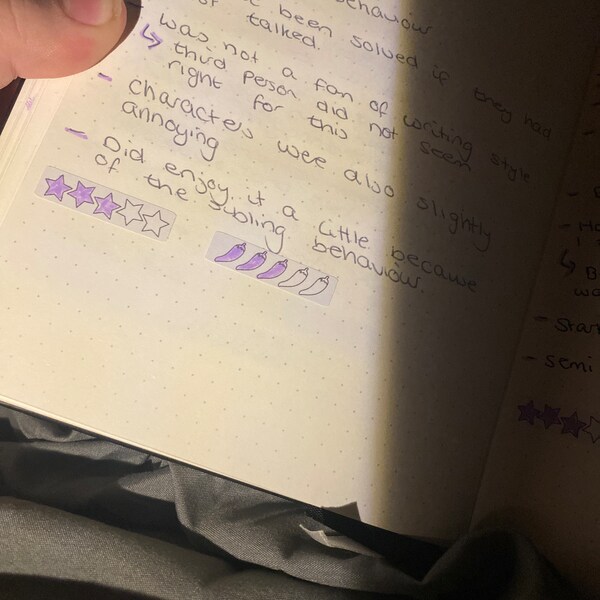 behaviour
been solved if they had
talked.
was not a fan of writing style
↳ third person did not seem
right for this
- Characters wee also slightly
annoying
- Did enjoy it a little because
of the sibling behaviour.
- Star
- semi